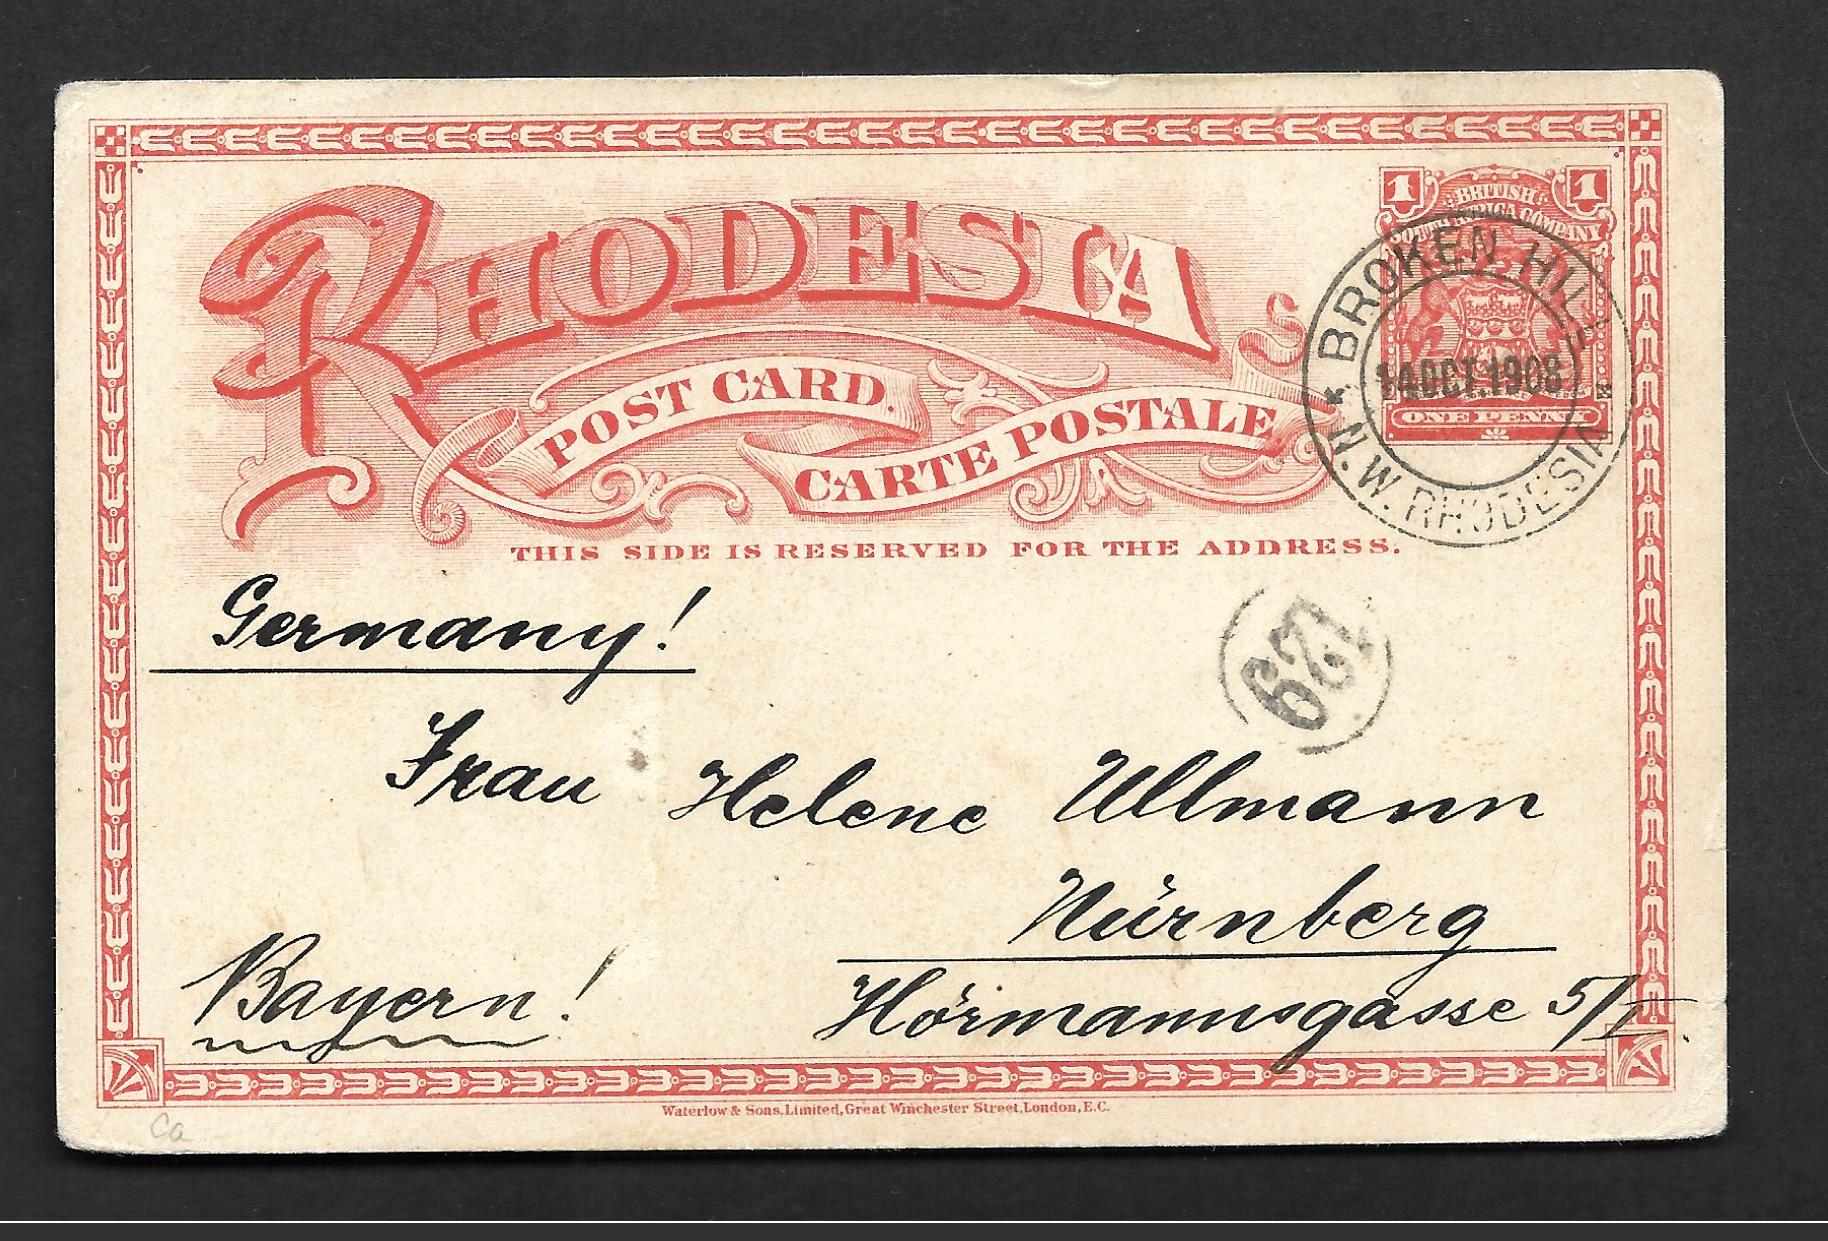 RHODESIA
POST CARD.
CARTE POSTALE
THIS SIDE IS RESERVED FOR THE ADDRESS.
1 1
BRITISH
SOUTH AFRICA COMPANY
ONE PENNY
BROKEN HILL
14 OCT. 1908
N.W. RHODESIA
Germany!
129
Frau Helene Ullmann
Nürnberg
Bayern!
Hörmannsgasse 5/I.
Waterlow & Sons, Limited, Great Winchester Street, London, E.C.
Ca